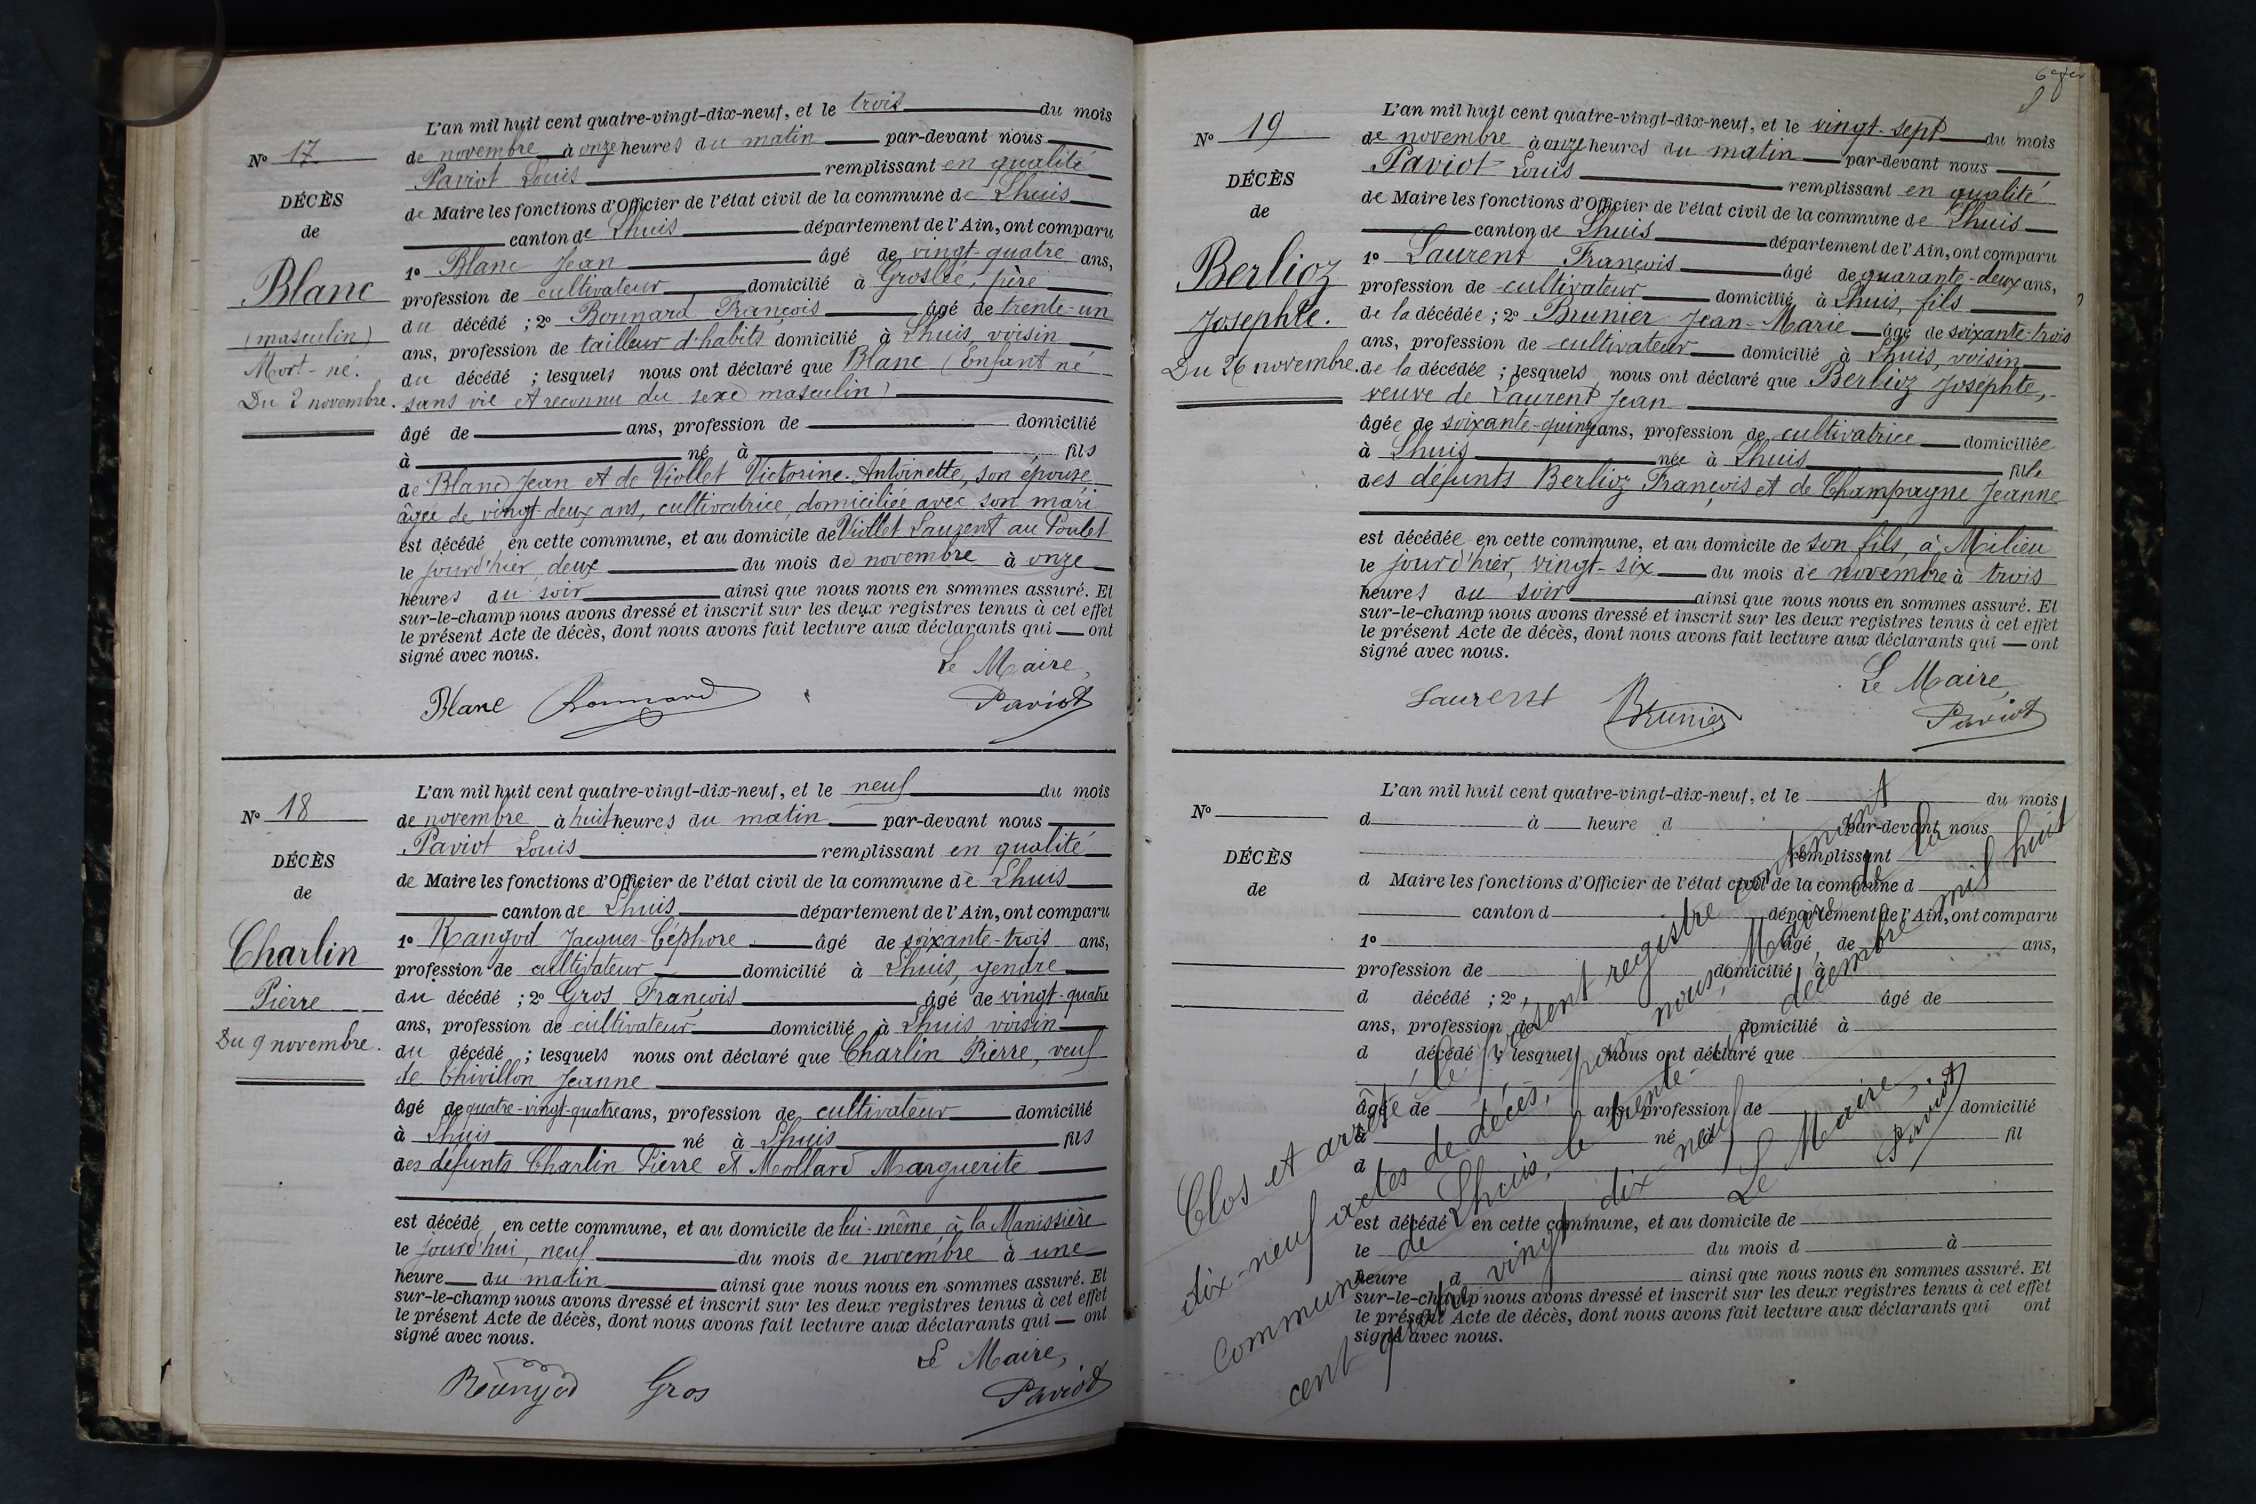 Nº 17
DÉCÈS
de
Blanc
(masculin)
Mort-né.
Du 2 novembre.
L'an mil huit cent quatre-vingt-dix-neuf, et le trois du mois
de novembre à onze heures du matin par-devant nous
Paviot Louis remplissant en qualité
de Maire les fonctions d'Officier de l'état civil de la commune de Lhuis
canton de Lhuis département de l'Ain, ont comparu
1º Blanc Jean âgé de vingt-quatre ans,
profession de cultivateur domicilié à Groslée, père
du décédé ; 2º Bonnard François âgé de trente-un
ans, profession de tailleur d'habits domicilié à Lhuis voisin
du décédé ; lesquels nous ont déclaré que Blanc (Enfant né
sans vie et reconnu du sexe masculin)
âgé de ans, profession de domicilié
à né à fils
de Blanc Jean et de Viollet Victorine-Antoinette, son épouse
âgée de vingt deux ans, cultivatrice domiciliée avec son mari
est décédé en cette commune, et au domicile de Viollet Laurent au Poulet
le jourd'hier, deux du mois de novembre à onze
heures du soir ainsi que nous nous en sommes assuré. Et
sur-le-champ nous avons dressé et inscrit sur les deux registres tenus à cet effet
le présent Acte de décès, dont nous avons fait lecture aux déclarants qui ont
signé avec nous.
Le Maire,
Blanc Bonnard Paviot
Nº 18
DÉCÈS
de
Charlin
Pierre
Du 9 novembre.
L'an mil huit cent quatre-vingt-dix-neuf, et le neuf du mois
de novembre à huit heures du matin par-devant nous
Paviot Louis remplissant en qualité
de Maire les fonctions d'Officier de l'état civil de la commune de Lhuis
canton de Lhuis département de l'Ain, ont comparu
1º Rangod Jacques-Cephore âgé de soixante-trois ans,
profession de cultivateur domicilié à Lhuis, gendre
du décédé ; 2º Gros François âgé de vingt-quatre
ans, profession de cultivateur domicilié à Lhuis voisin
du décédé ; lesquels nous ont déclaré que Charlin Pierre, veuf
de Chivillon Jeanne
âgé de quatre-vingt-quatre ans, profession de cultivateur domicilié
à Lhuis né à Lhuis fils
des défunts Charlin Pierre et Mollard Marguerite
est décédé en cette commune, et au domicile de lui-même à la Manissière
le jourd'hui, neuf du mois de novembre à une
heure du matin ainsi que nous nous en sommes assuré. Et
sur-le-champ nous avons dressé et inscrit sur les deux registres tenus à cet effet
le présent Acte de décès, dont nous avons fait lecture aux déclarants qui ont
signé avec nous.
Le Maire,
Rangod Gros Paviot
Nº 19
DÉCÈS
de
Berlioz
Josephte.
Du 26 novembre.
L'an mil huit cent quatre-vingt-dix-neuf, et le vingt-sept du mois
de novembre à onze heures du matin par-devant nous
Paviot Louis remplissant en qualité
de Maire les fonctions d'Officier de l'état civil de la commune de Lhuis
canton de Lhuis département de l'Ain, ont comparu
1º Laurent François âgé de quarante-deux ans,
profession de cultivateur domicilié à Lhuis, fils
de la décédée ; 2º Brunier Jean-Marie âgé de soixante-trois
ans, profession de cultivateur domicilié à Lhuis, voisin
de la décédée ; lesquels nous ont déclaré que Berlioz Josephte,
veuve de Laurent Jean
âgée de soixante-quinze ans, profession de cultivatrice domiciliée
à Lhuis née à Lhuis fille
des défunts Berlioz François et de Champagne Jeanne
est décédée en cette commune, et au domicile de son fils, à Milieu
le jourd'hier, vingt-six du mois de novembre à trois
heures du soir ainsi que nous nous en sommes assuré. Et
sur-le-champ nous avons dressé et inscrit sur les deux registres tenus à cet effet
le présent Acte de décès, dont nous avons fait lecture aux déclarants qui ont
signé avec nous.
Le Maire,
Laurent Brunier Paviot
Nº
DÉCÈS
de
L'an mil huit cent quatre-vingt-dix-neuf, et le du mois
d à heure d par-devant nous
remplissant
d Maire les fonctions d'Officier de l'état civil de la commune d
canton d département de l'Ain, ont comparu
1º âgé de ans,
profession de domicilié à
d décédé ; 2º âgé de
ans, profession de domicilié à
d décédé ; lesquel nous ont déclaré que
âgé de ans, profession de domicilié
à né à fil
d
est décédé en cette commune, et au domicile de
le du mois d à
heure d ainsi que nous nous en sommes assuré. Et
sur-le-champ nous avons dressé et inscrit sur les deux registres tenus à cet effet
le présent Acte de décès, dont nous avons fait lecture aux déclarants qui ont
signé avec nous.
Clos et arrêté, le présent registre contenant
dix-neuf actes de décès, par nous, Maire de la
Commune de Lhuis, le trente-un décembre mil huit
cent quatre vingt dix-neuf
Le Maire,
Paviot